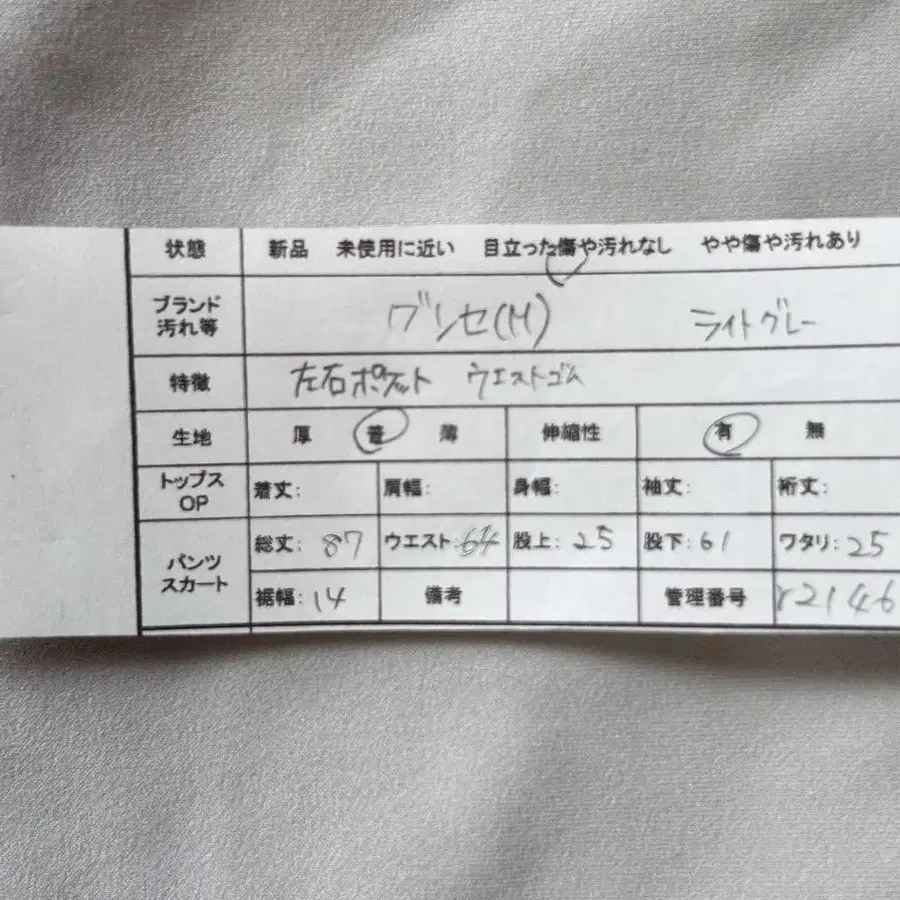 状態 新品 未使用に近い 目立った傷や汚れなし やや傷や汚れあり
ブランド 汚れ等 グンセ(M) ライトグレー
特徴 左右ポケット ウエストゴム
生地 厚 普 薄 伸縮性 有 無
トップス OP 着丈: 肩幅: 身幅: 袖丈: 裄丈:
パンツ スカート 総丈: 87 ウエスト: 64 股上: 25 股下: 61 ワタリ: 25
裾幅: 14 備考 管理番号 r2146